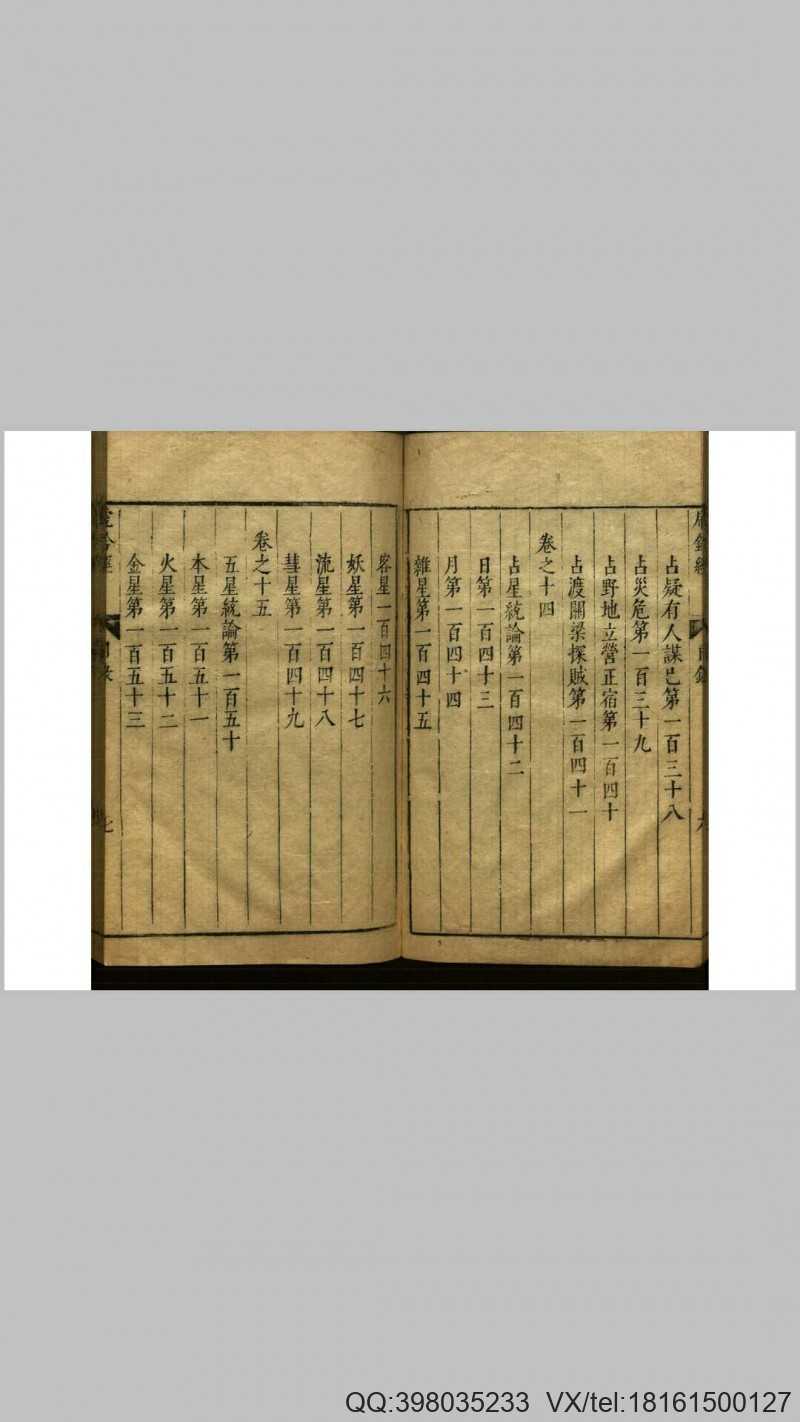 占疑有人謀己第一百三十八
占災危第一百三十九
占野地立營正宿第一百四十
占渡關梁探賊第一百四十一
卷之十四
占星統論第一百四十二
日第一百四十三
月第一百四十四
雜星第一百四十五
客星一百四十六
妖星第一百四十七
流星第一百四十八
彗星第一百四十九
卷之十五
五星統論第一百五十
木星第一百五十一
火星第一百五十二
金星第一百五十三
七
QQ:398035233 VX/tel:18161500127